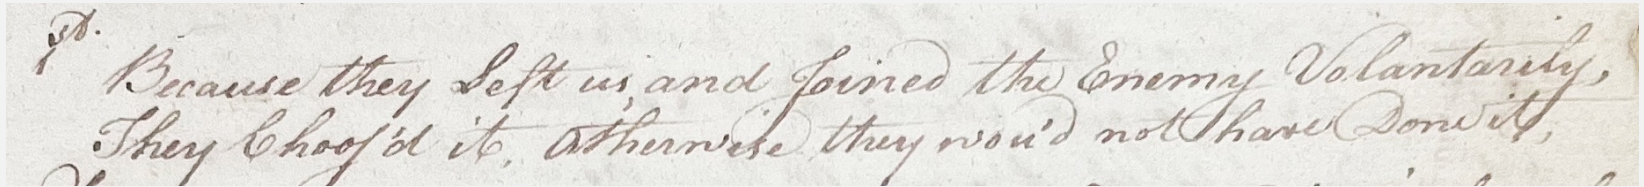 1st. Because they Left us, and Joined the Enemy Volantarily,
They Choos'd it, Otherwise they wou'd not have Done it,